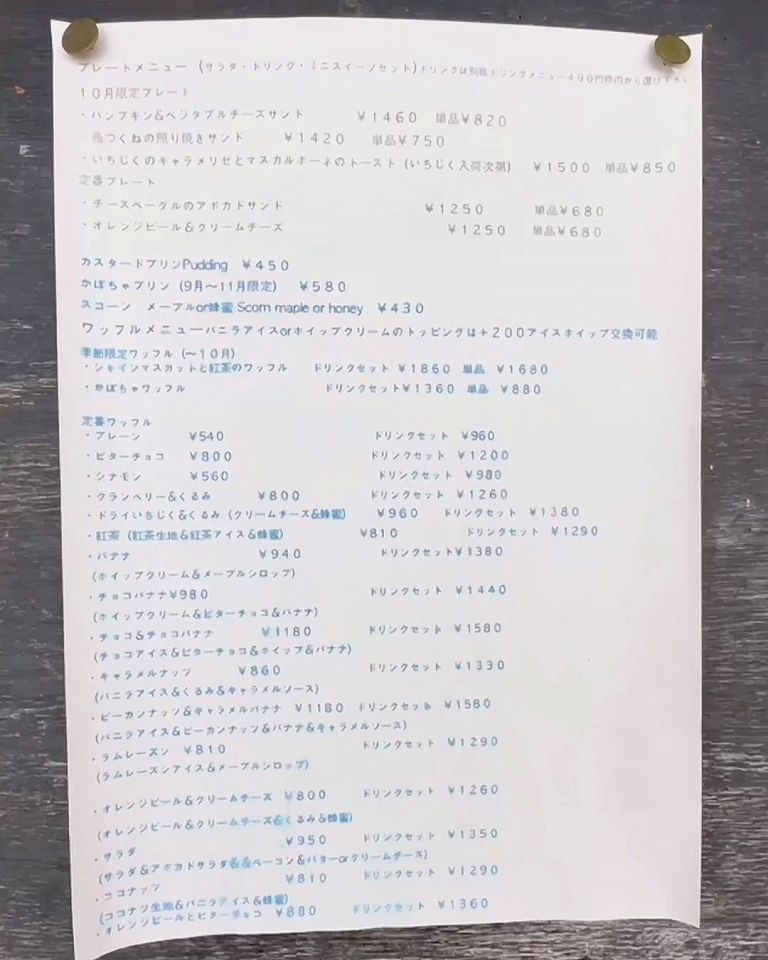 プレートメニュー (サラダ・ドリンク・ミニスイーツセット)ドリンクは別紙ドリンクメニュー490円枠内から選び下さい
10月限定プレート
・パンプキン&ベジタブルチーズサンド ¥1460 単品¥820
・鳥つくねの照り焼きサンド ¥1420 単品¥750
・いちじくのキャラメリゼとマスカルポーネのトースト (いちじく入荷次第) ¥1500 単品¥850
定番プレート
・チーズベーグルのアボカドサンド ¥1250 単品¥680
・オレンジピール&クリームチーズ ¥1250 単品¥680
カスタードプリンPudding ¥450
かぼちゃプリン (9月～11月限定) ¥580
スコーン メープルor蜂蜜 Scorn maple or honey ¥430
ワッフルメニューバニラアイスorホイップクリームのトッピングは+200アイスホイップ交換可能
季節限定ワッフル (～10月)
・シャインマスカットと紅茶のワッフル ドリンクセット ¥1860 単品 ¥1680
・かぼちゃワッフル ドリンクセット¥1360 単品 ¥880
定番ワッフル
・プレーン ¥540 ドリンクセット ¥960
・ビターチョコ ¥800 ドリンクセット ¥1200
・シナモン ¥560 ドリンクセット ¥980
・クランベリー&くるみ ¥800 ドリンクセット ¥1260
・ドライいちじく&くるみ (クリームチーズ&蜂蜜) ¥960 ドリンクセット ¥1380
・紅茶 (紅茶生地&紅茶アイス&蜂蜜) ¥810 ドリンクセット ¥1290
・バナナ ¥940 ドリンクセット¥1380
(ホイップクリーム&メープルシロップ)
・チョコバナナ¥980 ドリンクセット ¥1440
(ホイップクリーム&ビターチョコ&バナナ)
・チョコ&チョコバナナ ¥1180 ドリンクセット ¥1580
(チョコアイス&ビターチョコ&ホイップ&バナナ)
・キャラメルナッツ ¥860 ドリンクセット ¥1330
(バニラアイス&くるみ&キャラメルソース)
・ピーカンナッツ&キャラメルバナナ ¥1180 ドリンクセット ¥1580
(バニラアイス&ピーカンナッツ&バナナ&キャラメルソース)
・ラムレーズン ¥810 ドリンクセット ¥1290
(ラムレーズンアイス&メープルシロップ)
・オレンジピール&クリームチーズ ¥800 ドリンクセット ¥1260
(オレンジピール&クリームチーズ&くるみ&蜂蜜)
・サラダ ¥950 ドリンクセット ¥1350
(サラダ&アボカドサラダ&ベーコン&バターorクリームチーズ)
・ココナッツ ¥810 ドリンクセット ¥1290
(ココナツ生地&バニラアイス&蜂蜜)
・オレンジピールとビターチョコ ¥880 ドリンクセット ¥1360